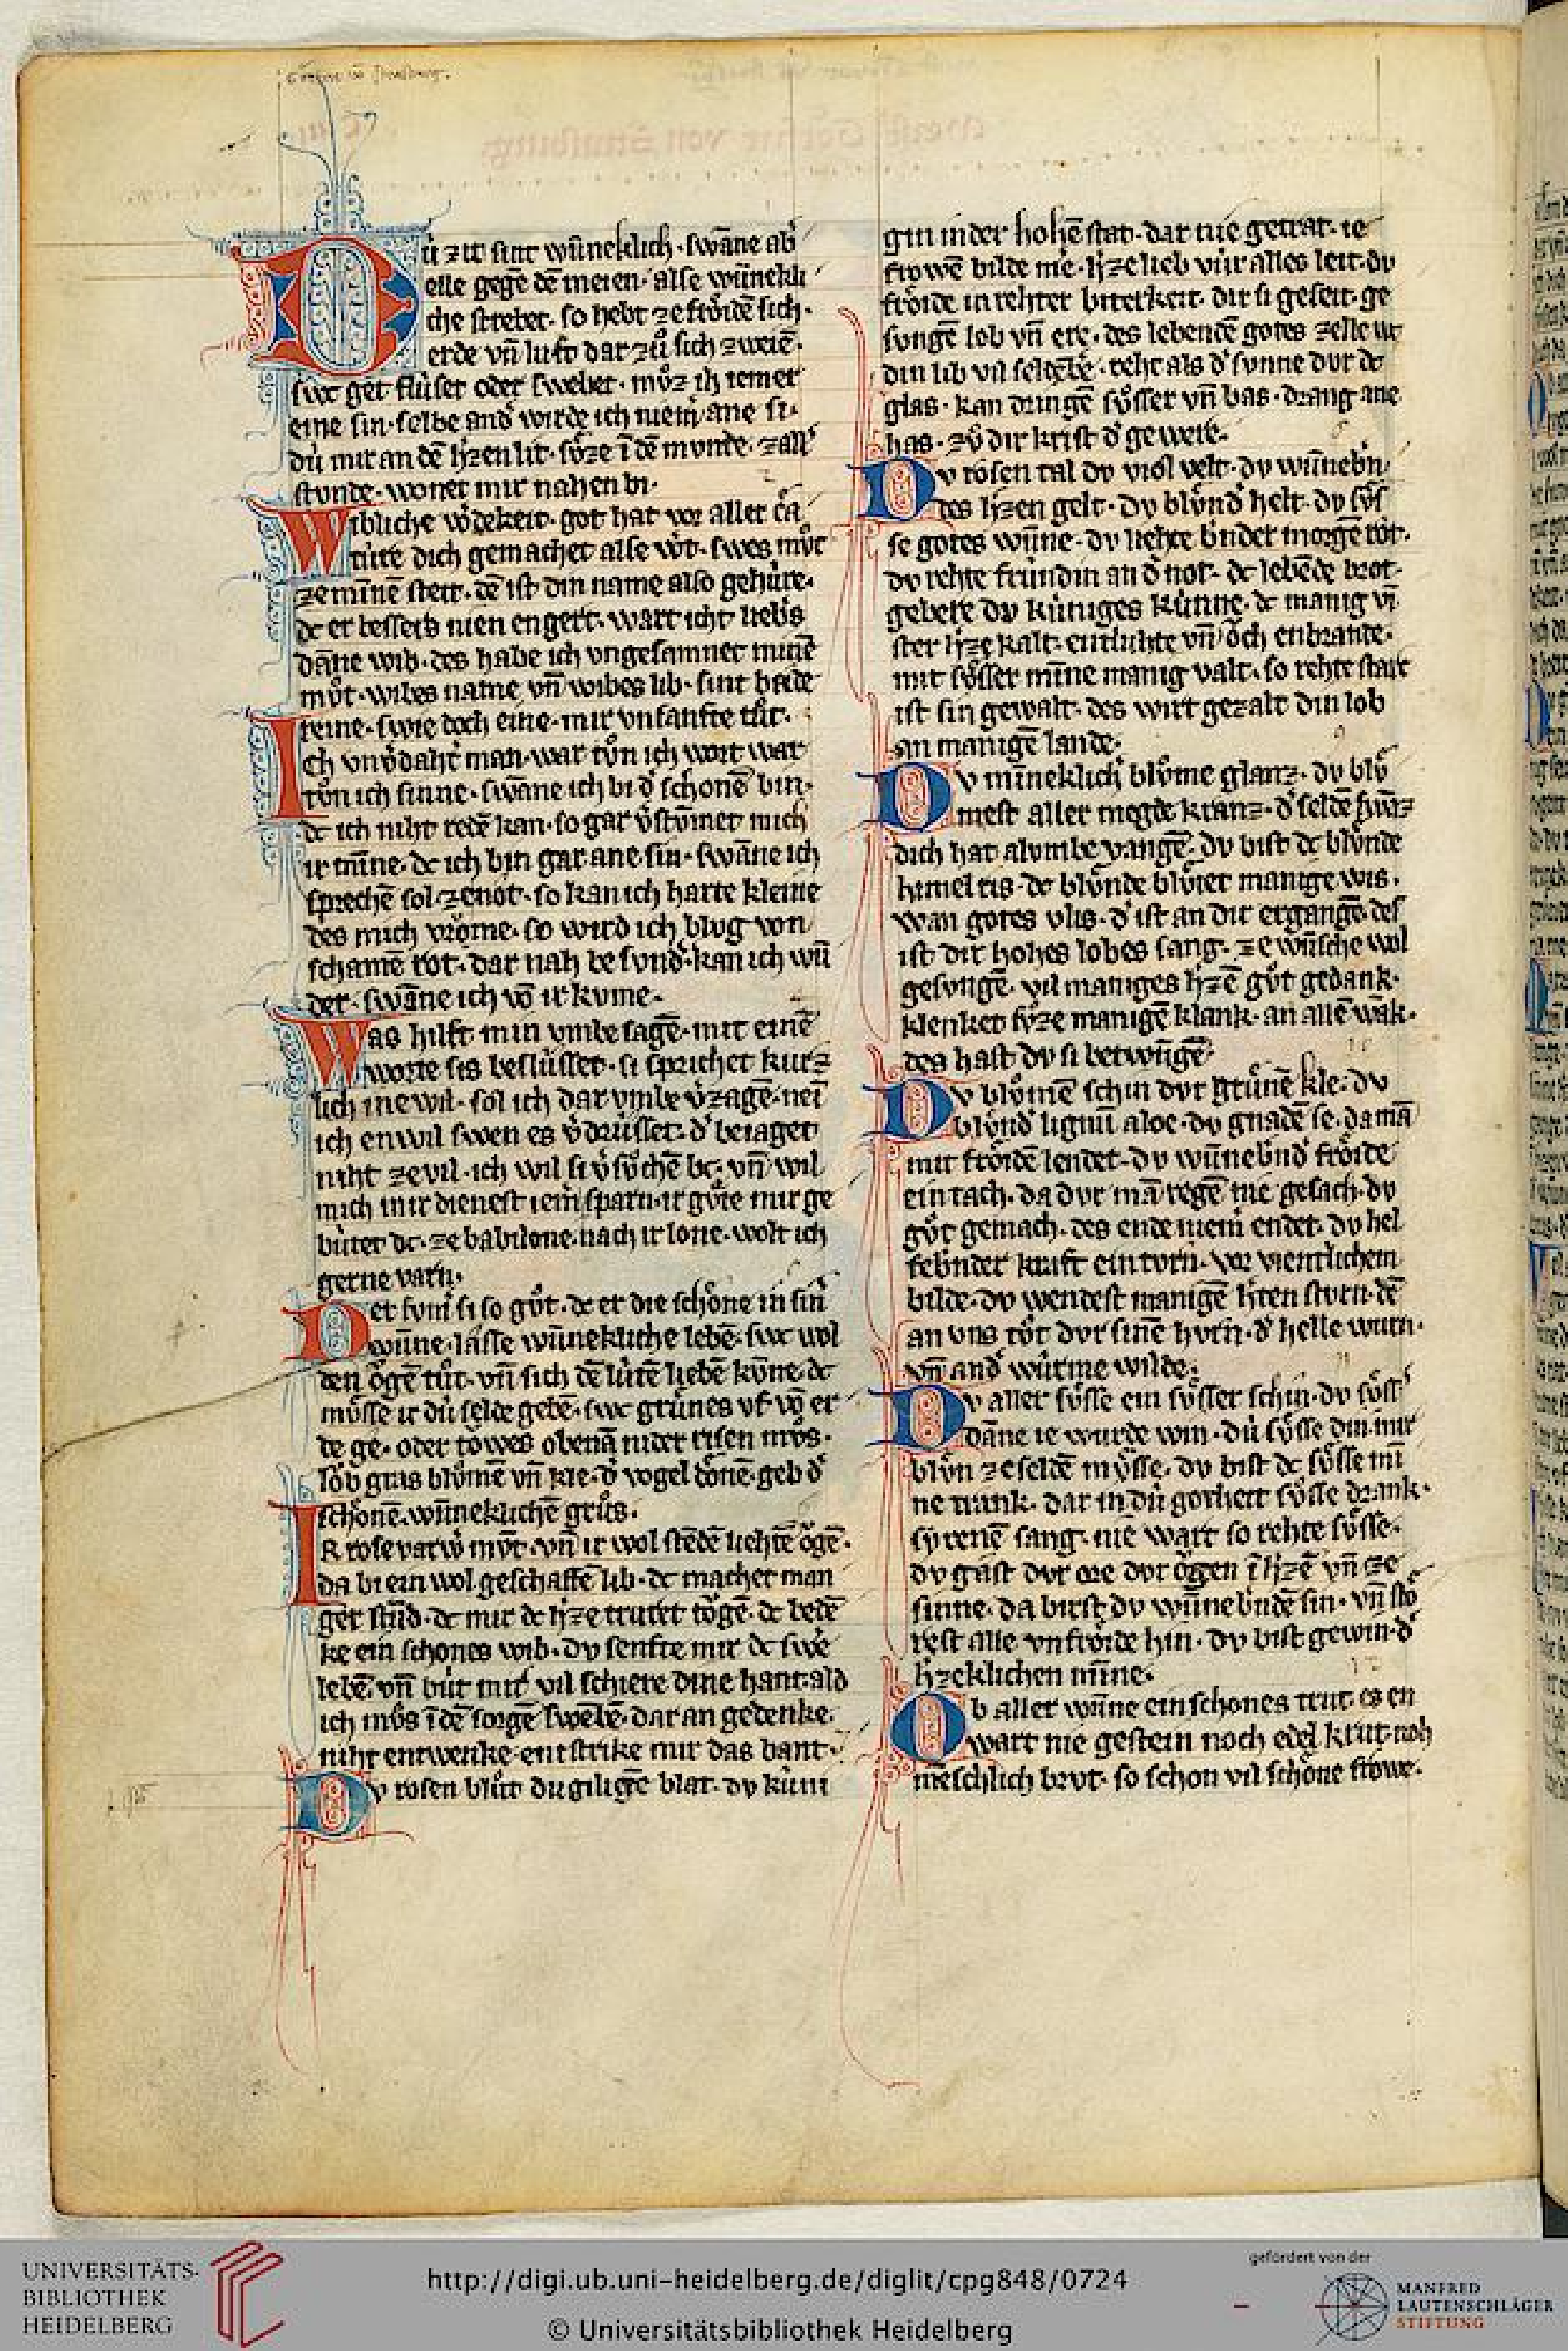 Dú zit ist wūneklich · swāne ab͛
elle gegē dē meien · alse wūnekli
che strebet · so hebt ze frôidē sich ·
erde vn̄ luft dar zů sich zweiē ·
swc get flúset oder swebet · můz ih iemer
eine sin · selbe and͛ wirde ich niem͛ ane si ·
dú mir an dē h͛zen lit · sůze ī dē munde · zall͛
stunde · wonet mir nahen bi ·
Wibliche w͛dekeit · got hat vor aller c͛a
ture dich gemachet alse w͛t · swes můt
ze minē stett · dē ist din name also gehúre ·
dc er bessers nien engert · wart icht lieb͛s
dāne wib · des habe ich vngesamnet minē
můt · wibes name vn̄ wibes lib · sint beide
reine · swie doch eine · mir vnsanfte tůt ·
Ich vnv͛daht͛ man · war tůn ich wort war
tůn ich sinne · swāne ich bi d͛ schonē bin ·
dc ich niht redē kan · so gar v͛stūmet mich
ir mīne · dc ich bin gar ane sin · swāne ich
sprechē sol ze not · so kan ich harte kleine
des mich vrôme · so wird ich blug von
schamē rot · dar nah be sund͛ · kan ich wū
der · swāne ich vō ir kume ·
Was hilft min vmbe sagē · mit einē
worte sis beslússet · si sprichet kurz
lich ine wil · sol ich dar vmbe v͛zagē · nei
ich en wil swen es v͛drússet · d͛ betaget
niht ze vil · ich wil si v͛sůchē bc · vn̄ wil
mich mir dienest iem͛ sparn · ir gůte mir ge
bútet dc · ze babilone · nach ir lone · wolt ich
gerne varn ·
Der sum͛ si so gůt · dc er die schône in sin͛
wūne · lâsse wūnekliche lebē · swc wol
den ôgē tůt · vn̄ sich dē lútē liebē kōne · dc
můsse ir dú selde gebē · swc grůnes vf vō er
de ge · oder towes obenā nider risen můs ·
lôb gras blůmē vn̄ kle · d͛ vogel dônē · geb d͛
schonē · wūneklichē grůs ·
IR rose varw͛ můt · vn̄ ir wol stēdē liehtē ôgē ·
da bi ein wol geschaffē lib · dc machet man
ger stūd · dc mir dc h͛ze trutet tôgē · dc bedē
ke ein schones wib · dv senfte mir dc swe
lebē · vn̄ bút mir vil schiere dine hant · ald
ich můs ī dē sorgē swebē · dar an gedenke
niht entwenke · entstrike mir das bant ·
Dv rosen blůt du giligē blat · dv kúni
gin in der hohē stat · dar nie getrat · ie
frowē bilde me · h͛ze lieb vúr alles leit · dv
frôide in rehter bitterkeit · dir si geseit · ge
svngē lob vn̄ ere · des lebendē gotes zelle w
din lib vil selēbē · reht als d͛ svnne dvr dc
glas · kan dringē sůsser vn̄ bas · drang ane
has · zů dir krist d͛ gewere ·
Dv rosen tal dv viol velt · dv wūneb͛n
des h͛zen gelt · dv blůnd͛ helt · dv sůs
se gotes wūne · dv liehte b͛nder morgē rot ·
dv rehte frúndin an d͛ not · dc lebēde brot ·
gebere dv kúniges kúnne · dc manig vī
ster h͛ze kalt · entluhte vn̄ ôch enbrante ·
mit sůsser mīne manig valt · so rehte stark
ist sin gewalt · des wirt gezalt din lob
an manigē lande ·
Dv mīneklich͛ blůme glanz · dv blů
mest aller megde kranz · d͛ seldē swāz
dich hat alvmbe vangē · dv bist dc blůnde
himel ris · dc blůnde blůiet manige wis ·
wan gotes vlis · d͛ ist an dir ergangē · des
ist dir hohes lobes sang · ze wūsche wol
gesvngē · vil maniges h͛zē gůt gedank ·
klenket sůze manigē klank · an allē wāk ·
des hast dv si betwngē ·
Dv blůmē schin dvr grůnē kle · dv
blůnd͛ lignū aloe · dv gnadē se · da mā
mit frôidē lendet · dv wūneb͛nd͛ frôide
ein tach · da dvr mā regē nie gesach · dv
gůt gemach · des ende niem͛ endet · dv hel
feb͛nder kraft ein torn · vor vientlichem
bilde · dv wendest manigē h͛ten storn · dē
an vns tůt dvr sinē horn · d͛ helle wurn ·
vn̄ and͛ wúrme wilde ·
Dv aller sůsse ein sůsser schin · dv sůss͛
dāne ie wurde win · dú sůsse din · mir
blůn ze seldē můsse · dv bist dc sůsse mī
ne trank · dar in dú gotheit sůsse drank ·
syrenē sang · nie wart so rehte sůsse ·
dv gast dvr ore dvr ôgen ī h͛zē vn̄ ze
sinne · da birst dv wūneb͛ndē sin · vn̄ stô
rest alle vnfrôide hin · dv bist gewin · d͛
h͛zeklichen mīne ·
Ob aller wūne ein schones trut · es en
wart nie gestein noch edel krut · noh
mēschlich brvt · so schon vil schône frowe ·
UNIVERSITÄTS-
BIBLIOTHEK
HEIDELBERG
http://digi.ub.uni-heidelberg.de/diglit/cpg848/0724
© Universitätsbibliothek Heidelberg
gefördert von der
MANFRED
LAUTENSCHLÄGER
STIFTUNG